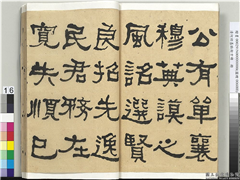 公有單襄
穆典謨之
風詔選賢
良招先逸
民君務在
寬失順已
16